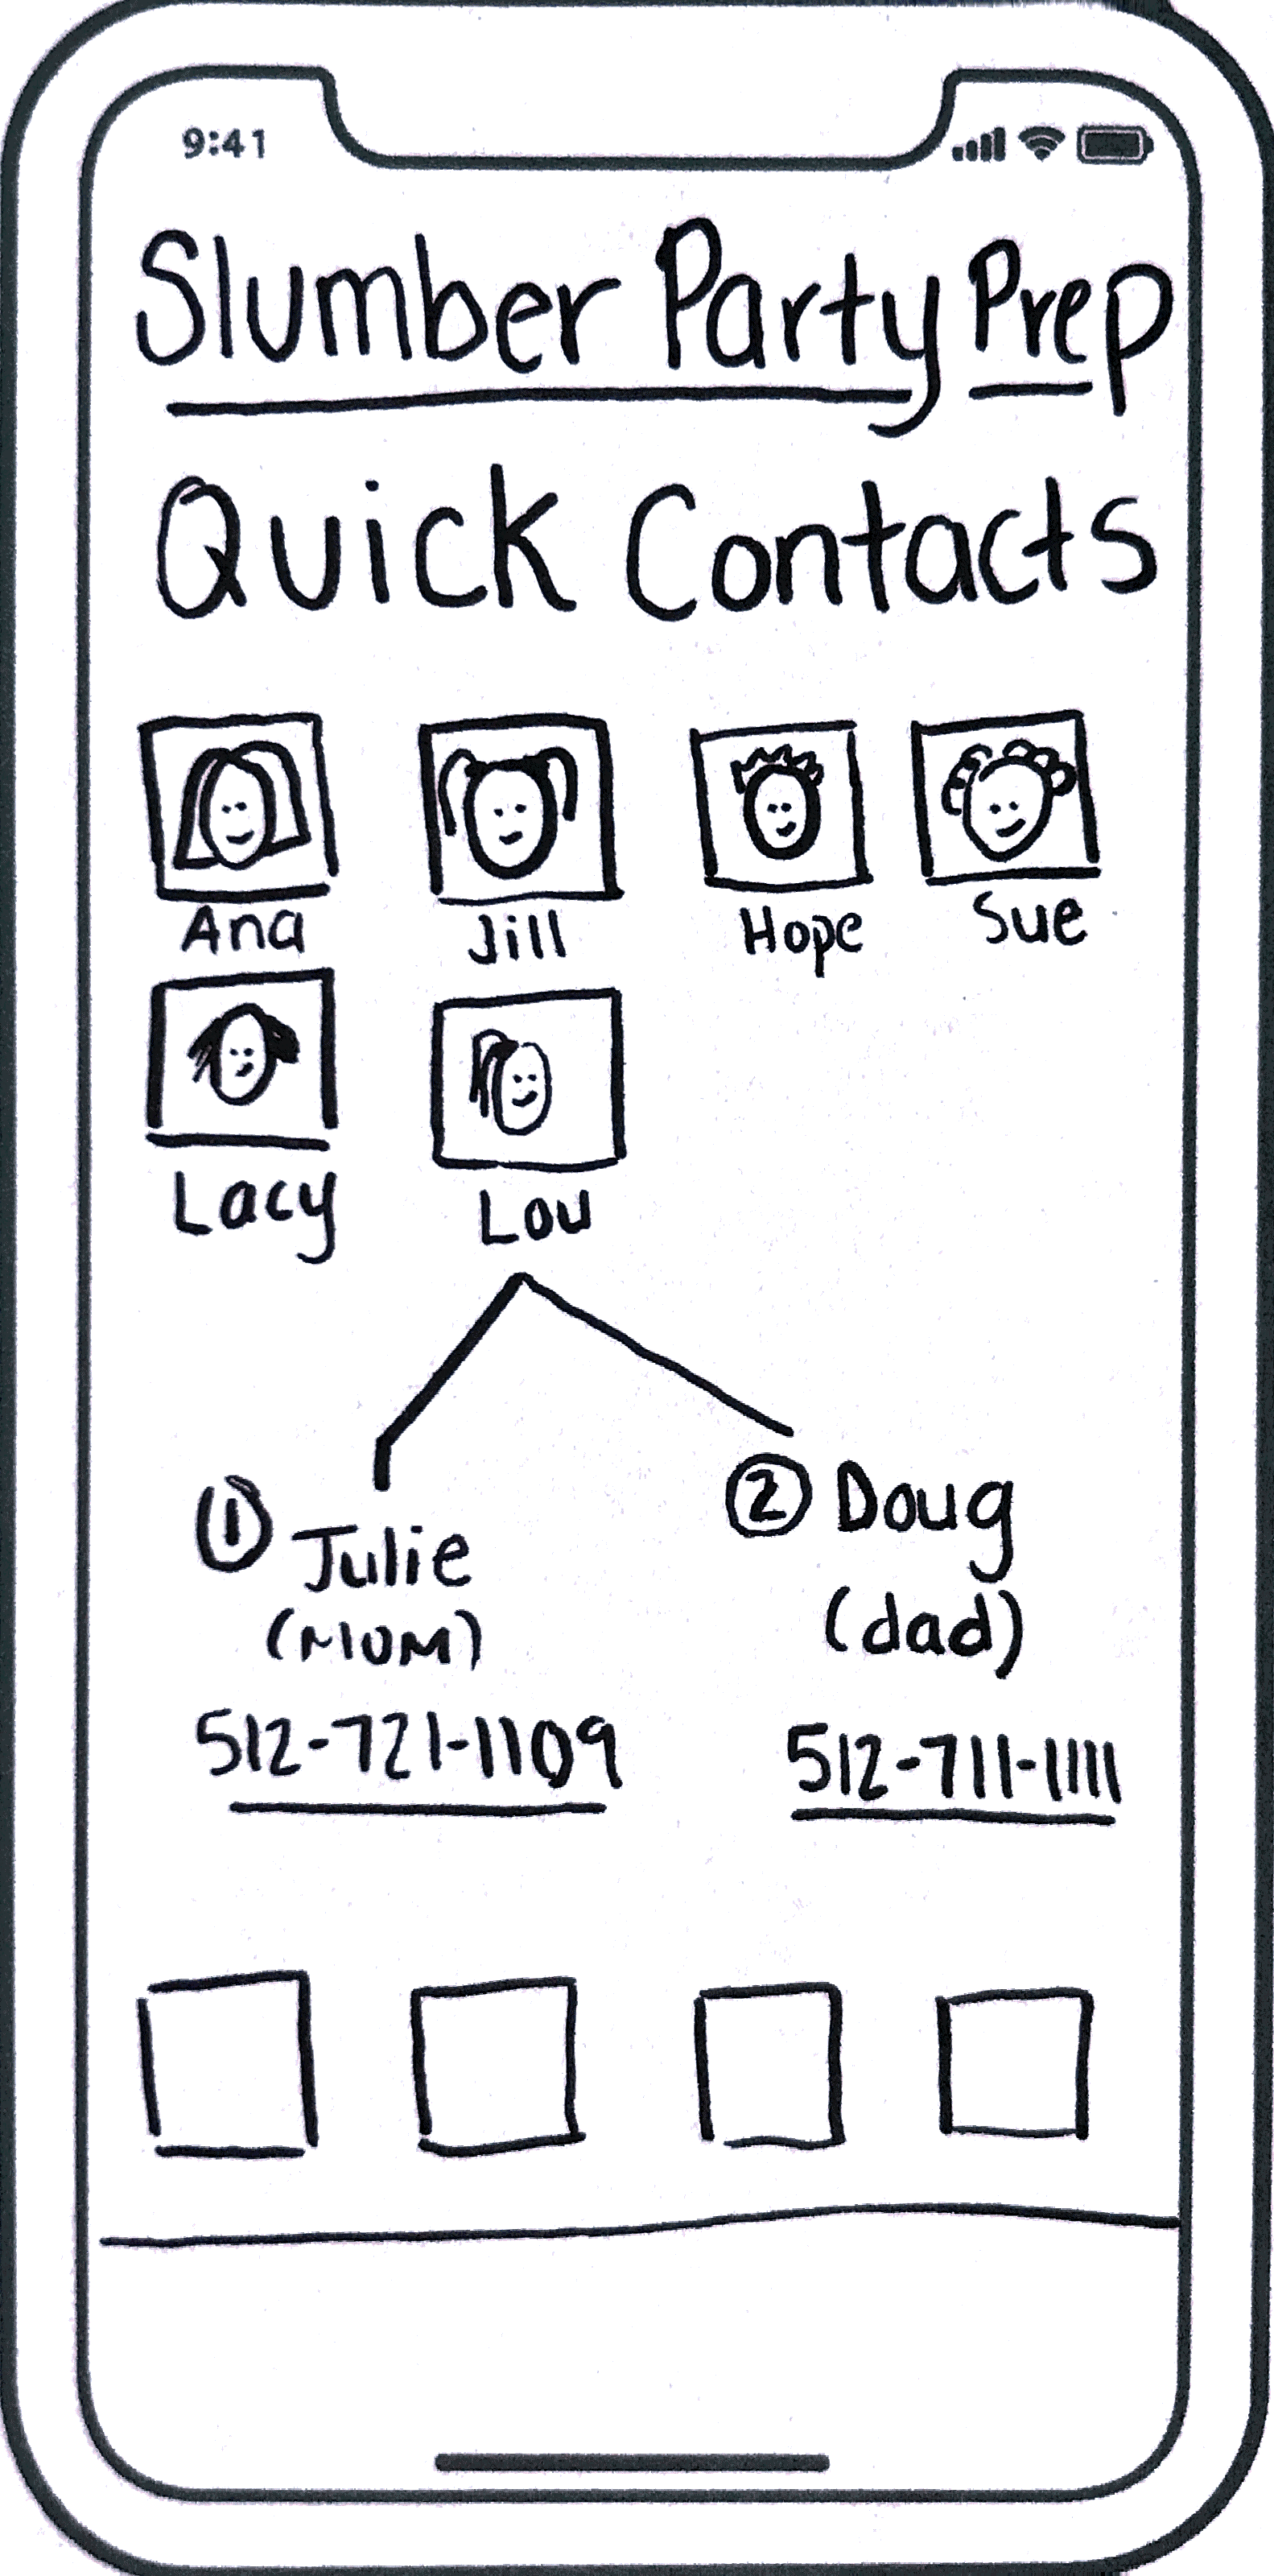 9:41
Slumber Party Prep
Quick Contacts
Ana Jill Hope Sue
Lacy Lou
1 Julie
(MOM)
512-721-1109
2 Doug
(dad)
512-711-1111